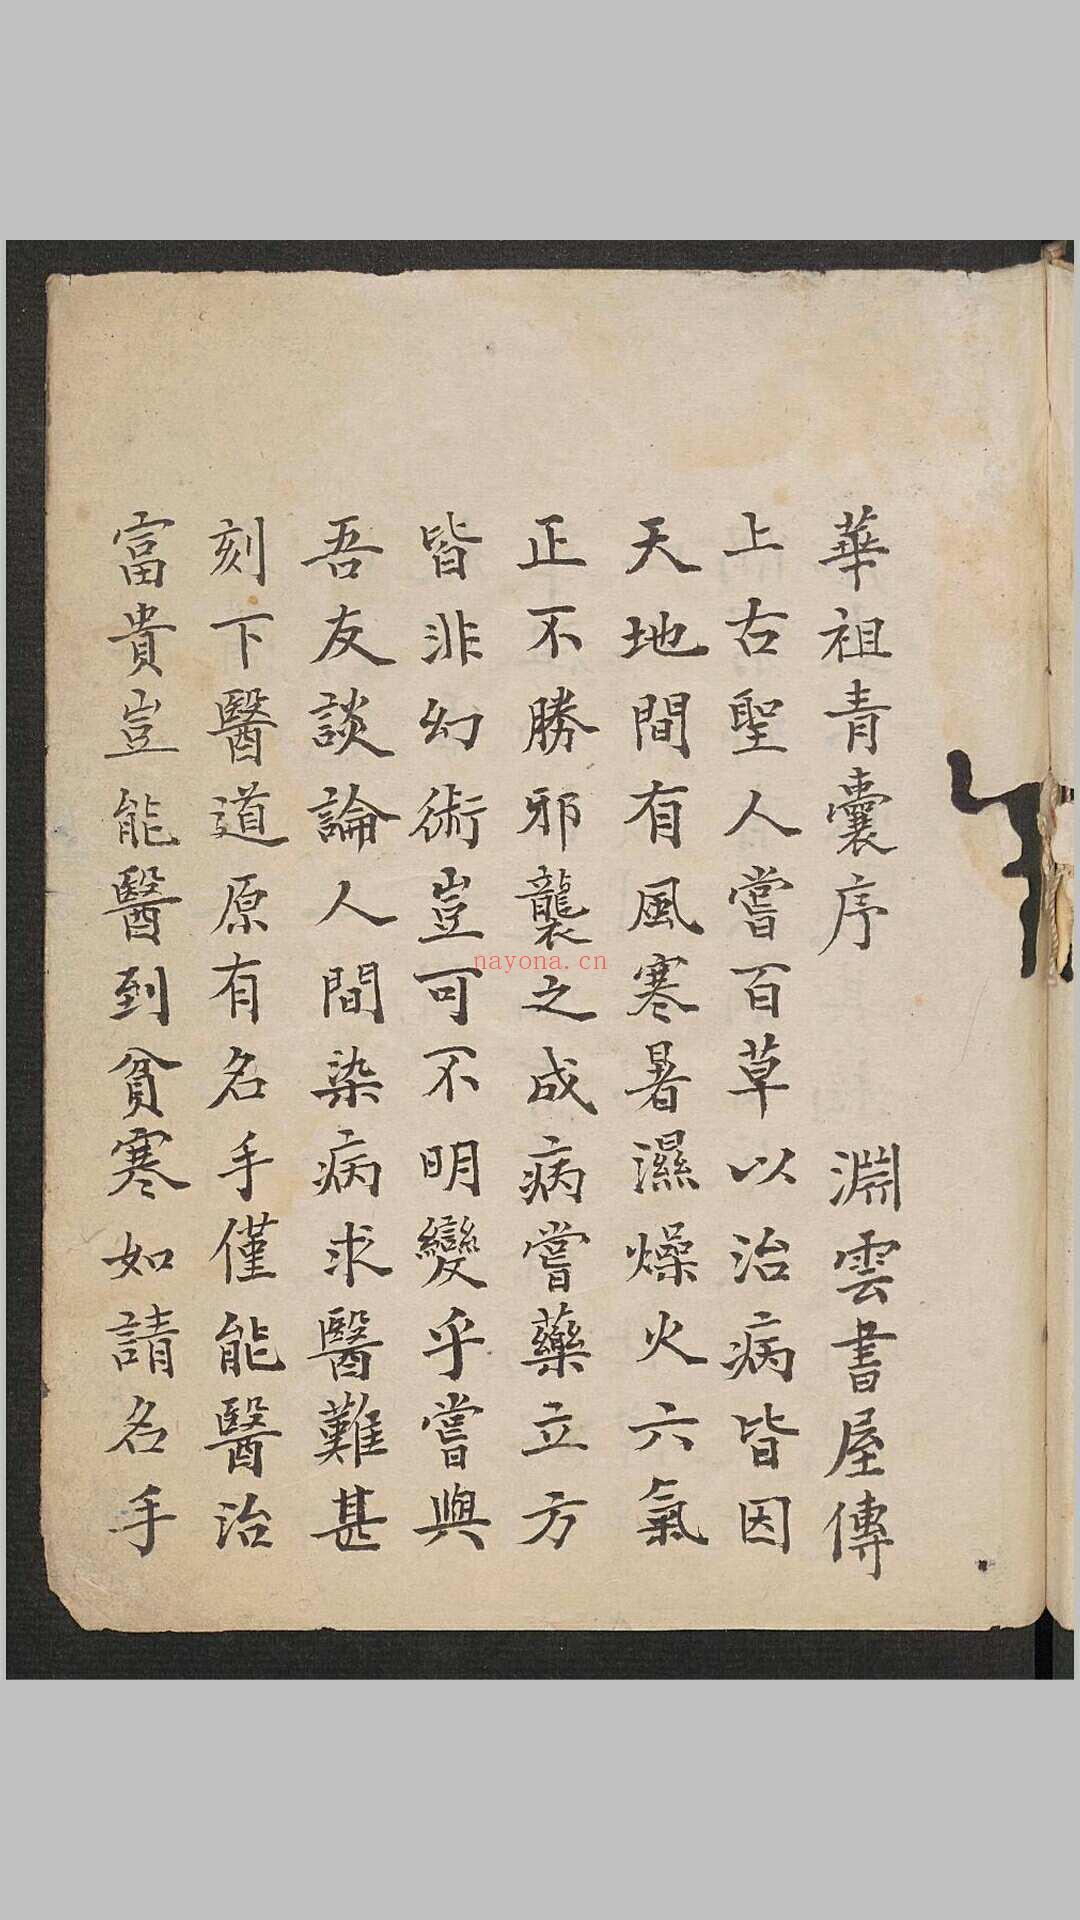 華祖青囊序 淵雲書屋傳
上古聖人嘗百草以治病皆因
天地間有風寒暑濕燥火六氣
正不勝邪襲之成病嘗藥立方
皆非幻術豈可不明變乎嘗與
吾友談論人間染病求醫難甚
刻下醫道原有名手僅能醫治
富貴豈能醫到貧寒如請名手
nayona.cn